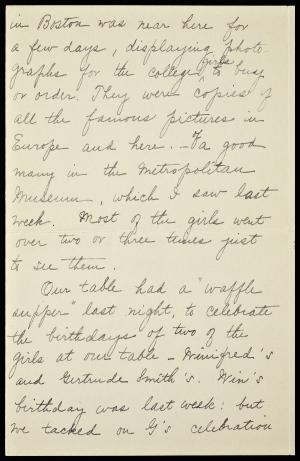 in Boston was near here for
a few days, displaying photo-
graphs for the college girls to buy
or order. They were copies of
all the famous pictures in
Europe and here. – Of a good
many in the Metropolitan
Museum, which I saw last
week. Most of the girls went
over two or three times just
to see them.
Our table had a "waffle
supper" last night, to celebrate
the birthdays of two of the
girls at our table – Winifred's
and Gertrude Smith's. Win's
birthday was last week: but
we tacked on G's celebration